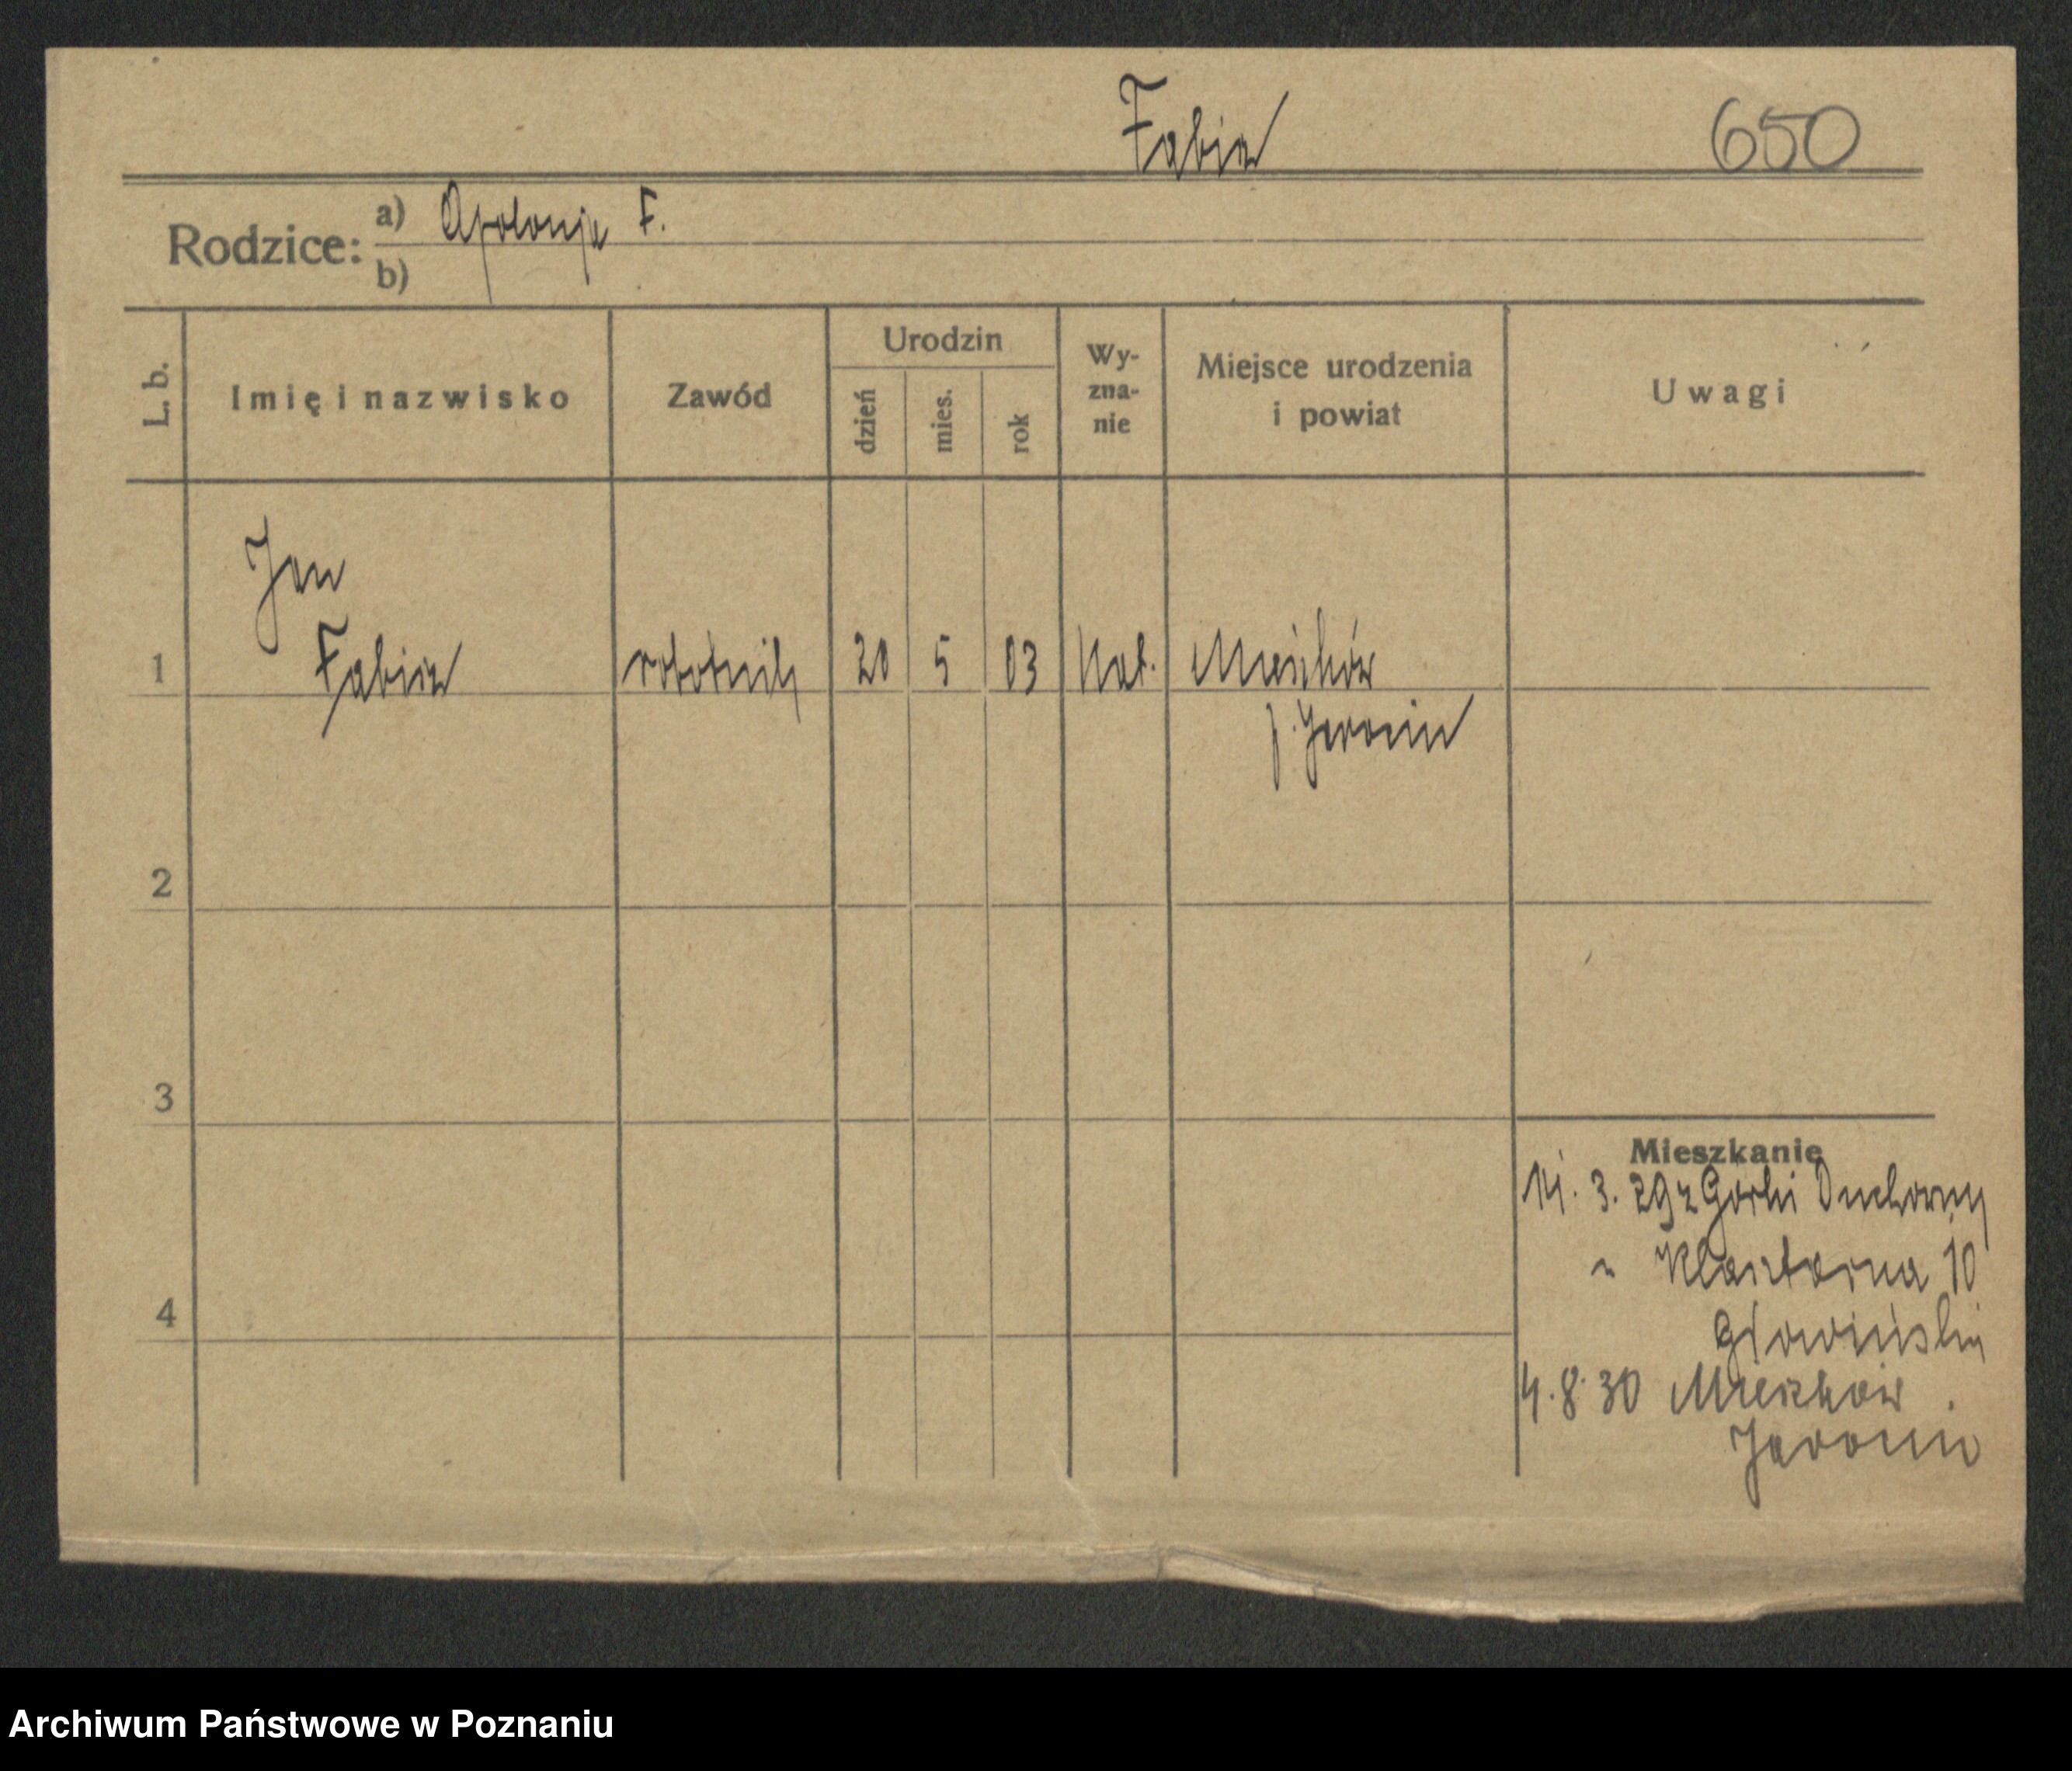 Fabia 650
Rodzice: a) Apolonja F.
b)
L. b. Imię i nazwisko Zawód Urodzin dzień mies. rok Wy-zna-nie Miejsce urodzenia i powiat Uwagi
Jan
1 Fabia robotnik 20 5 03 Kat. Mieszków
p. Jarocin
2
3
Mieszkanie
14. 3. 29 z Górki Duchownej
" Klasztorna 10
4 Głowiński
4. 8. 30 Mieszków
Jarocin
Archiwum Państwowe w Poznaniu